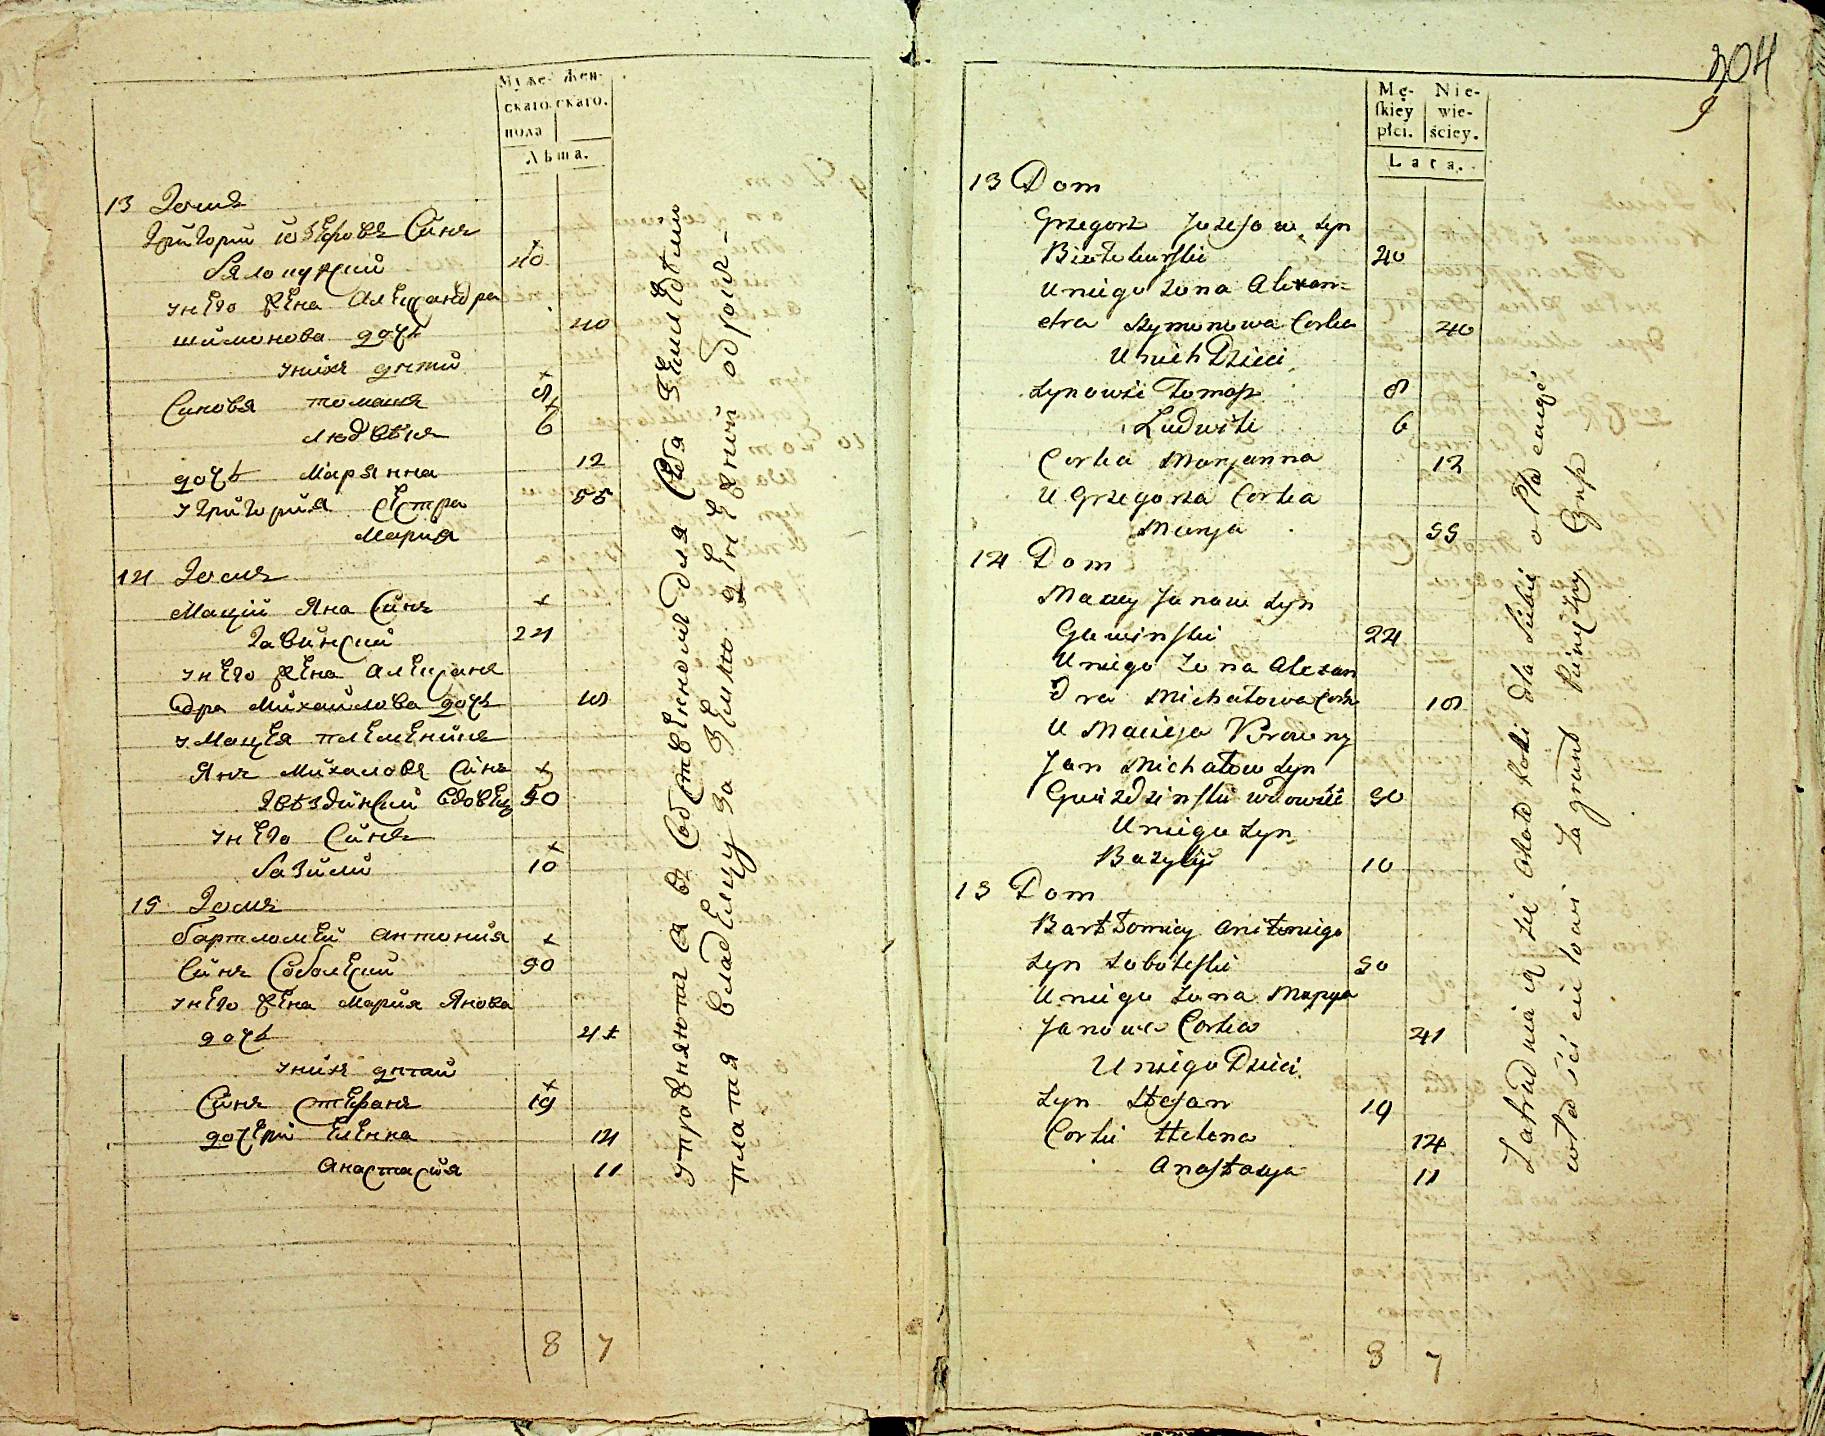 Муже- Жен-
скаго. скаго.
пола
Лѣта.
13 Домъ
Григорій Юзефовъ Сынъ
Бялокурскій 40
у него жена Александра
шимонова дочь 40
у нихъ дѣти
Сыновя томашъ 8
людвикъ 6
дочь Марянна 12
у Григорія сестра 55
Мария
14 Домъ
Мацій Яна Сынъ
Гавинскій 24
у него жена Алексанъ
дра Михайлова дочь 18
у Мацея племеникъ
Янъ Михаловъ Сынъ
Гвѣздинскій вдовец 50
у него Сынъ
базили 10
15 Домъ
бартломей антонія
Сынъ Соболеский 50
у него жена Мария Янова
дочь 41
у нихъ дѣтай
Сынъ Стефанъ 19
дочери Еленна 14
Анастасия 11
8 7
упражняются въ Собственномъ для Себя земледелии
платя владелцу за землю денежний оброкъ
304
9
Mę- Nie-
skiey wie-
płci. ściey.
Lata.
13 Dom
Grzegorz Jozefow Syn
Białokurski 40
U niego Zona Alexan=
dra Szymonowa Corka 40
U nich Dzieci
Synowie Tomasz 8
Ludwik 6
Corka Marjanna 12
U Grzegorza Corka
Marja 55
14 Dom
Maciey Janow Syn
Gawinski 24
U niego Zona Alexan
dra Michałowa Corka 18
U Macieja Krewny
Jan Michałow Syn
Gwizdzinski wdowiec 50
U niego Syn
Bazyly 10
15 Dom
Bartłomiey Antoniego
Syn Soboleski 50
U niego Zona Marya
Janowa Corka 41
U niego Dzieci
Syn Stefan 19
Corki Helena 14
Anastazya 11
8 7
Zatrudniaią się około Roli dla siebie opłacaiąc
właścicielowi za grunt Czynsz